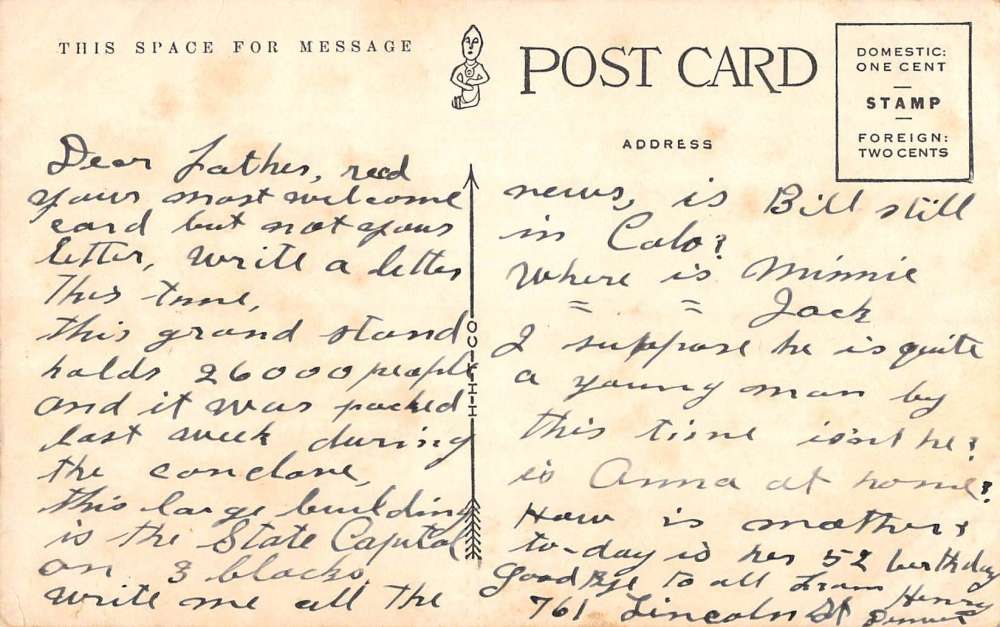 THIS SPACE FOR MESSAGE
POST CARD
DOMESTIC:
ONE CENT
STAMP
FOREIGN:
TWO CENTS
ADDRESS
Dear Father, recd
your most welcome
card but not your
letter, write a letter
This time,
this grand stand
holds 26000 people
and it was packed
last week during
the conclave,
this large building
is the State Capital
on 3 blocks,
write me all the
news, is Bill still
in Colo?
Where is Minnie
" " Jack
I suppose he is quite
a young man by
this time isnt he?
is Anna at home?
How is mother,
to-day is her 52 birthday
Good bye to all from Henry
761 Lincoln St Denver
H-H-T-CO